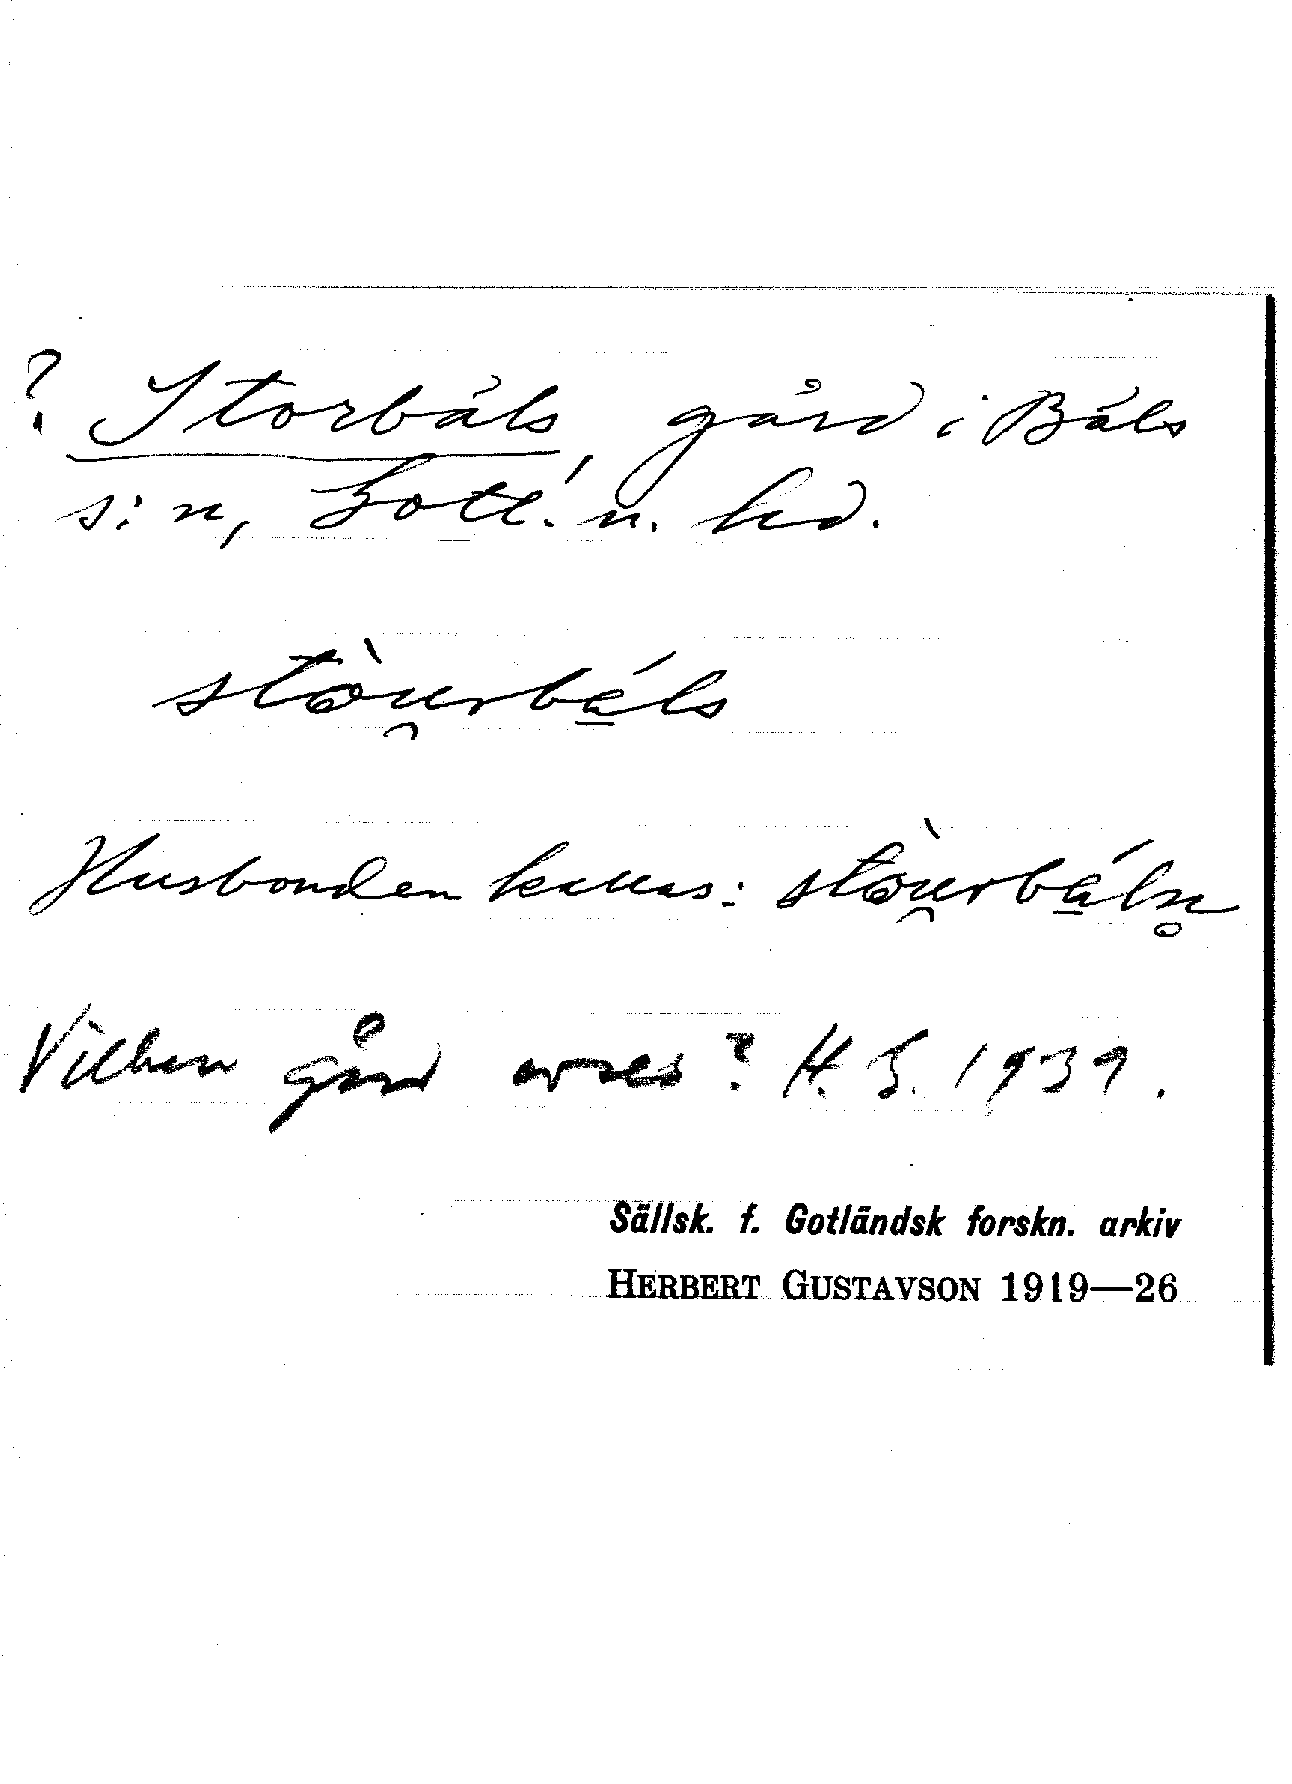 ? Storbåls, gård i Båls
s:n, Gotl. n. hd.
stòu̯rbá̱ls
Husbonden kallas: stòu̯rbá̱ln̥
Vilken gård avses? H. G. 1939.
Sällsk. f. Gotländsk forskn. arkiv
HERBERT GUSTAVSON 1919—26